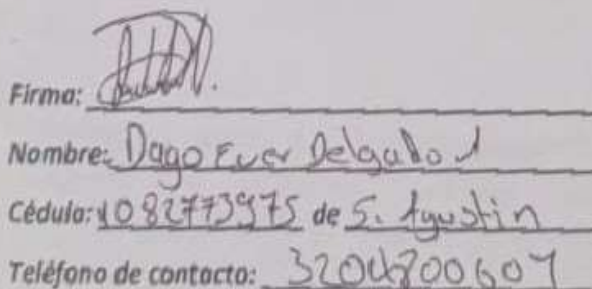 Firma:
Nombre: Dago Ever Delgado
Cédula: 1082773975 de S. Agustin
Teléfono de contacto: